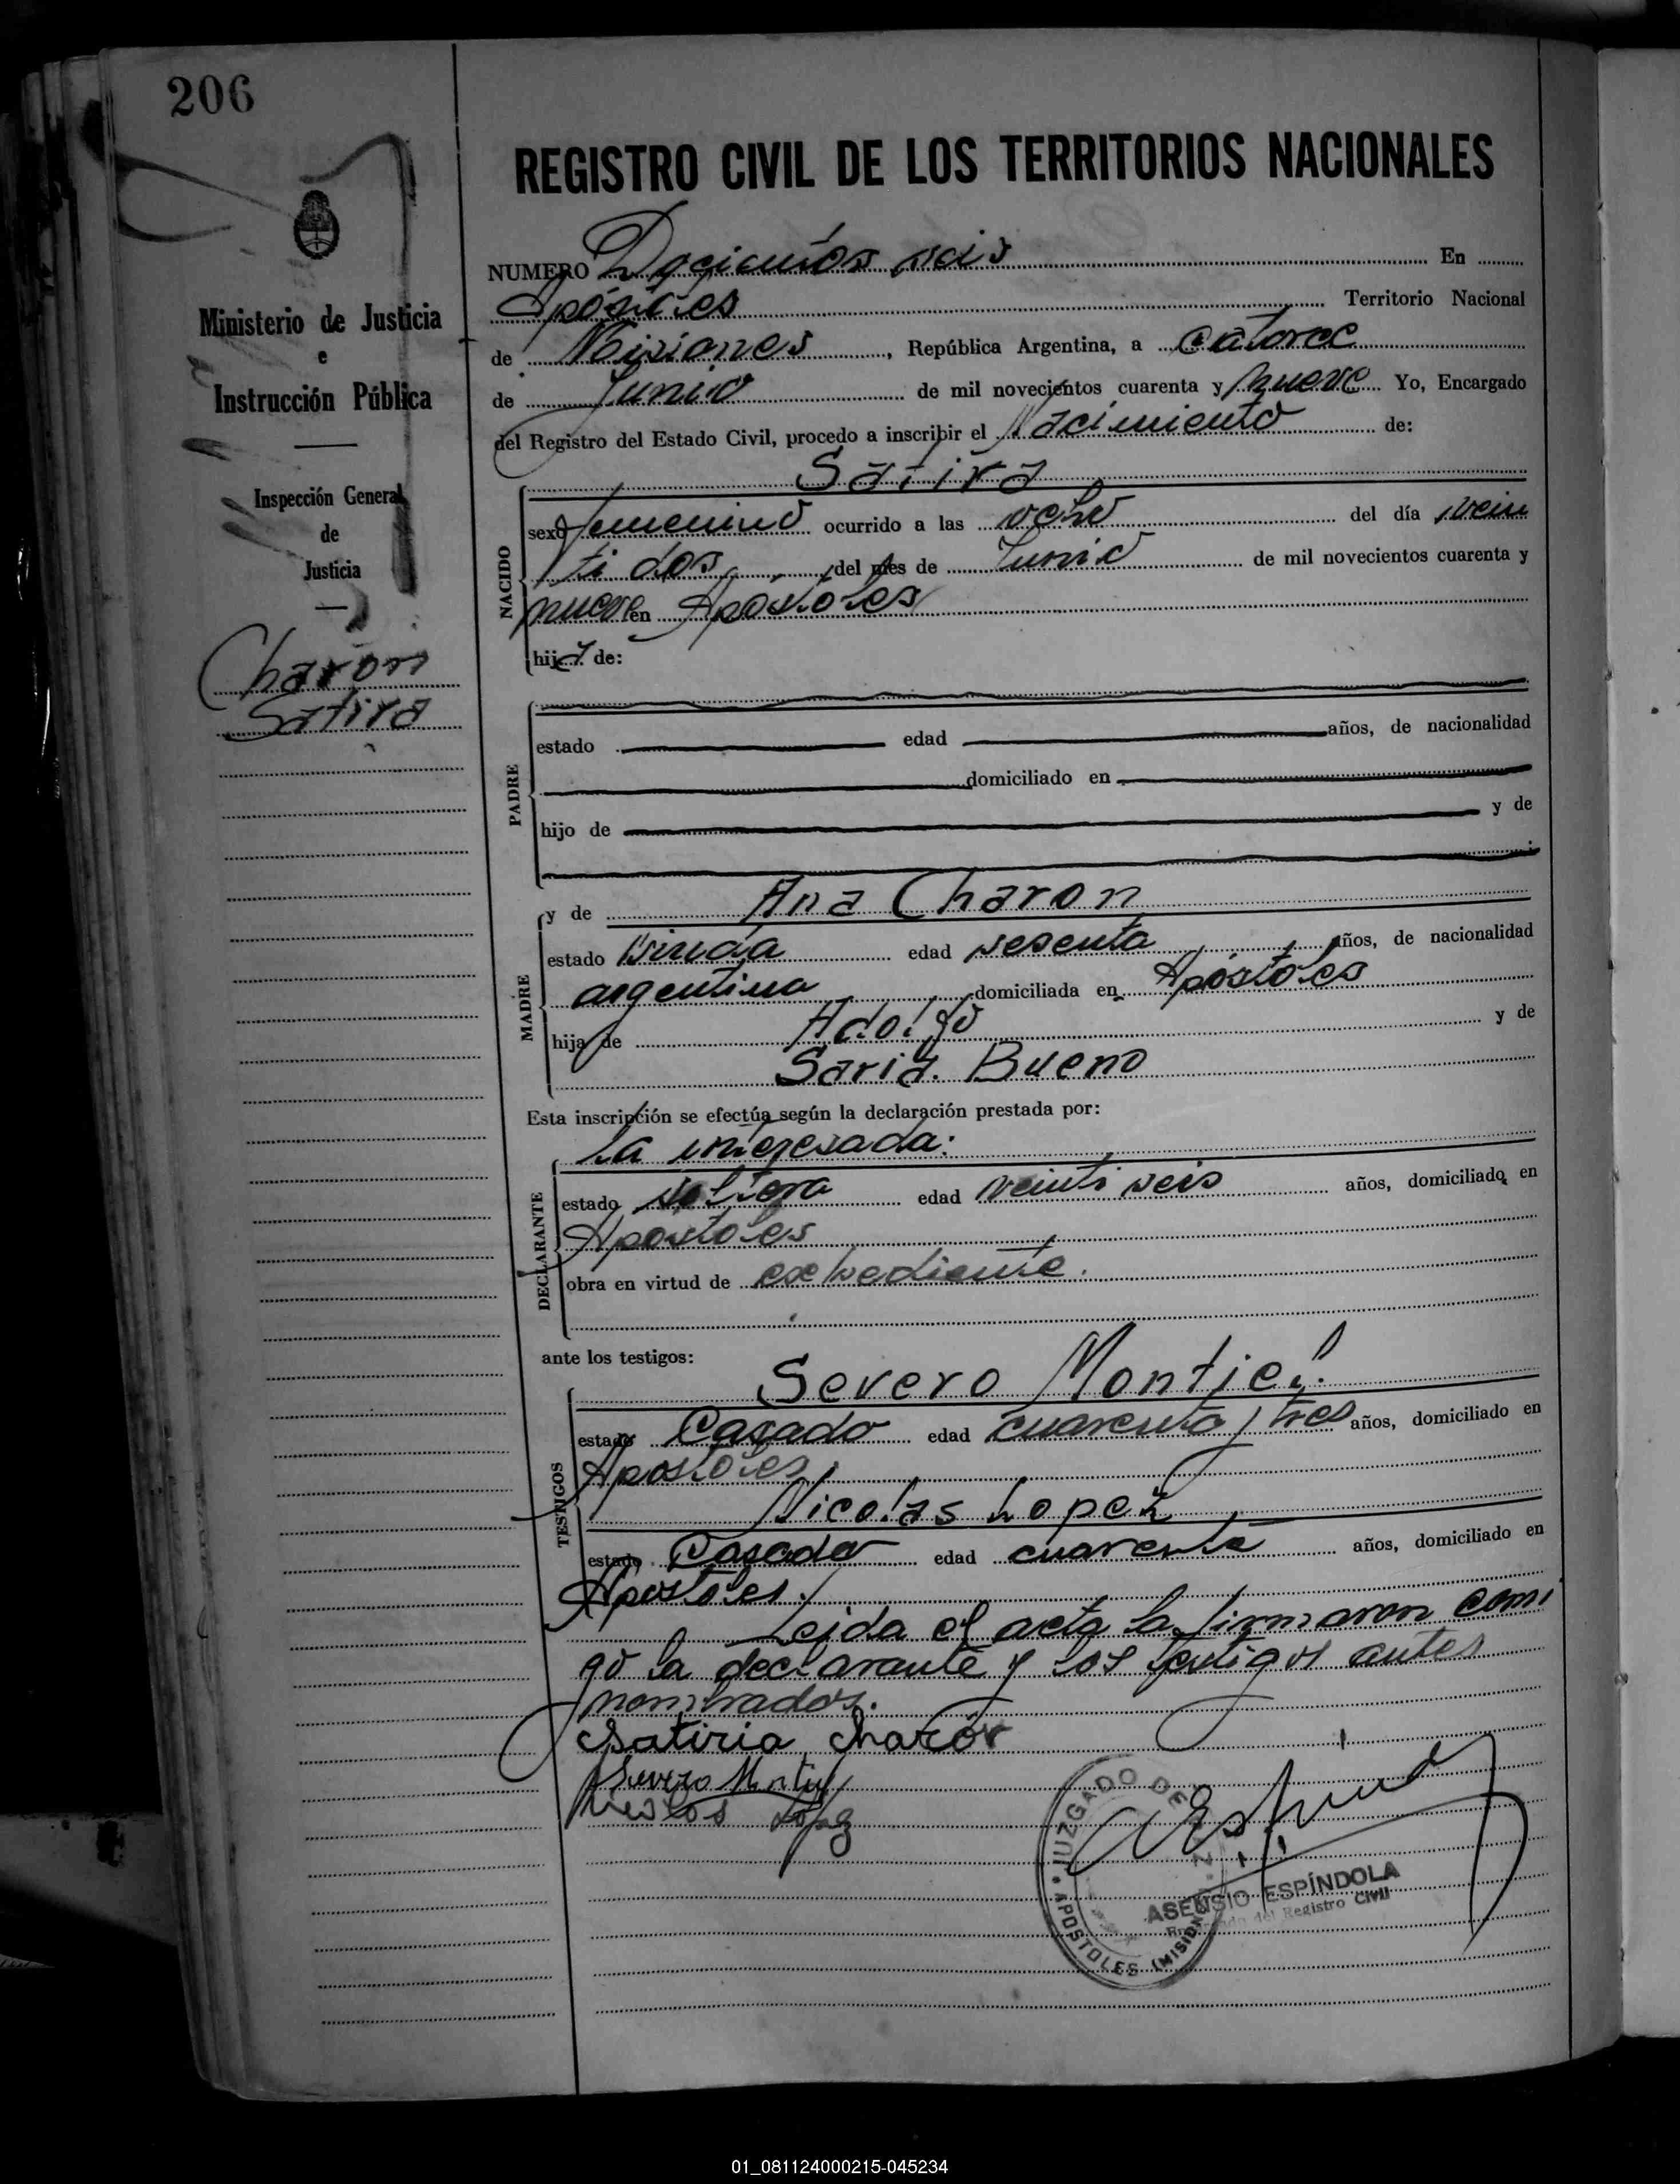 206
REGISTRO CIVIL DE LOS TERRITORIOS NACIONALES
Ministerio de Justicia
e
Instrucción Pública
Inspección General
de
Justicia
Charon
Satira
NUMERO Docientos seis En
Apóstoles Territorio Nacional
de Misiones, República Argentina, a catorce
de Junio de mil novecientos cuarenta y nueve Yo, Encargado
del Registro del Estado Civil, procedo a inscribir el Nacimiento de:
Satira
NACIDO
sexo femenino ocurrido a las ocho del día vein
ti dos del mes de Junio de mil novecientos cuarenta y
nueve en Apostoles
hija de:
PADRE
estado edad años, de nacionalidad
domiciliado en
hijo de y de
MADRE
y de Ana Charon
estado viuda edad sesenta años, de nacionalidad
argentina domiciliada en Apóstoles
hija de Adolfo y de
Saria. Bueno
Esta inscripción se efectúa según la declaración prestada por:
La interesada:
DECLARANTE
estado soltera edad veinti seis años, domiciliado en
Apostoles
obra en virtud de expediente.
ante los testigos:
Severo Montiel.
TESTIGOS
estado Casado edad cuarenta y tres años, domiciliado en
Apostoles,
Nicolas Lopez
estado Casado edad cuarenta años, domiciliado en
Apostoles.
Leida el acta la firmaron comi
go la declarante y los testigos antes
nombrados.
Satiria Charón
Severo Montiel
Nicolas Lopez
JUZGADO DE
APOSTOLES (MISION
ASENSIO ESPÍNDOLA
Encargado del Registro Civil
01_081124000215-045234